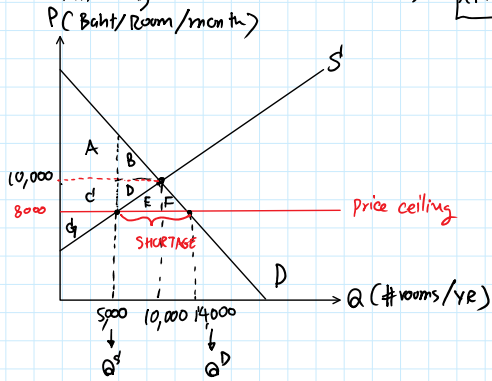 P(Baht/Room/month)
S
A
B
10,000
C
D
E
F
8000
Price ceiling
G
SHORTAGE
D
Q (#rooms/YR)
5,000
10,000
14,000
Qˢ
Qᴰ